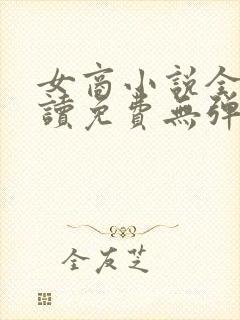 女商小说全
讀免費無彈
全友芝